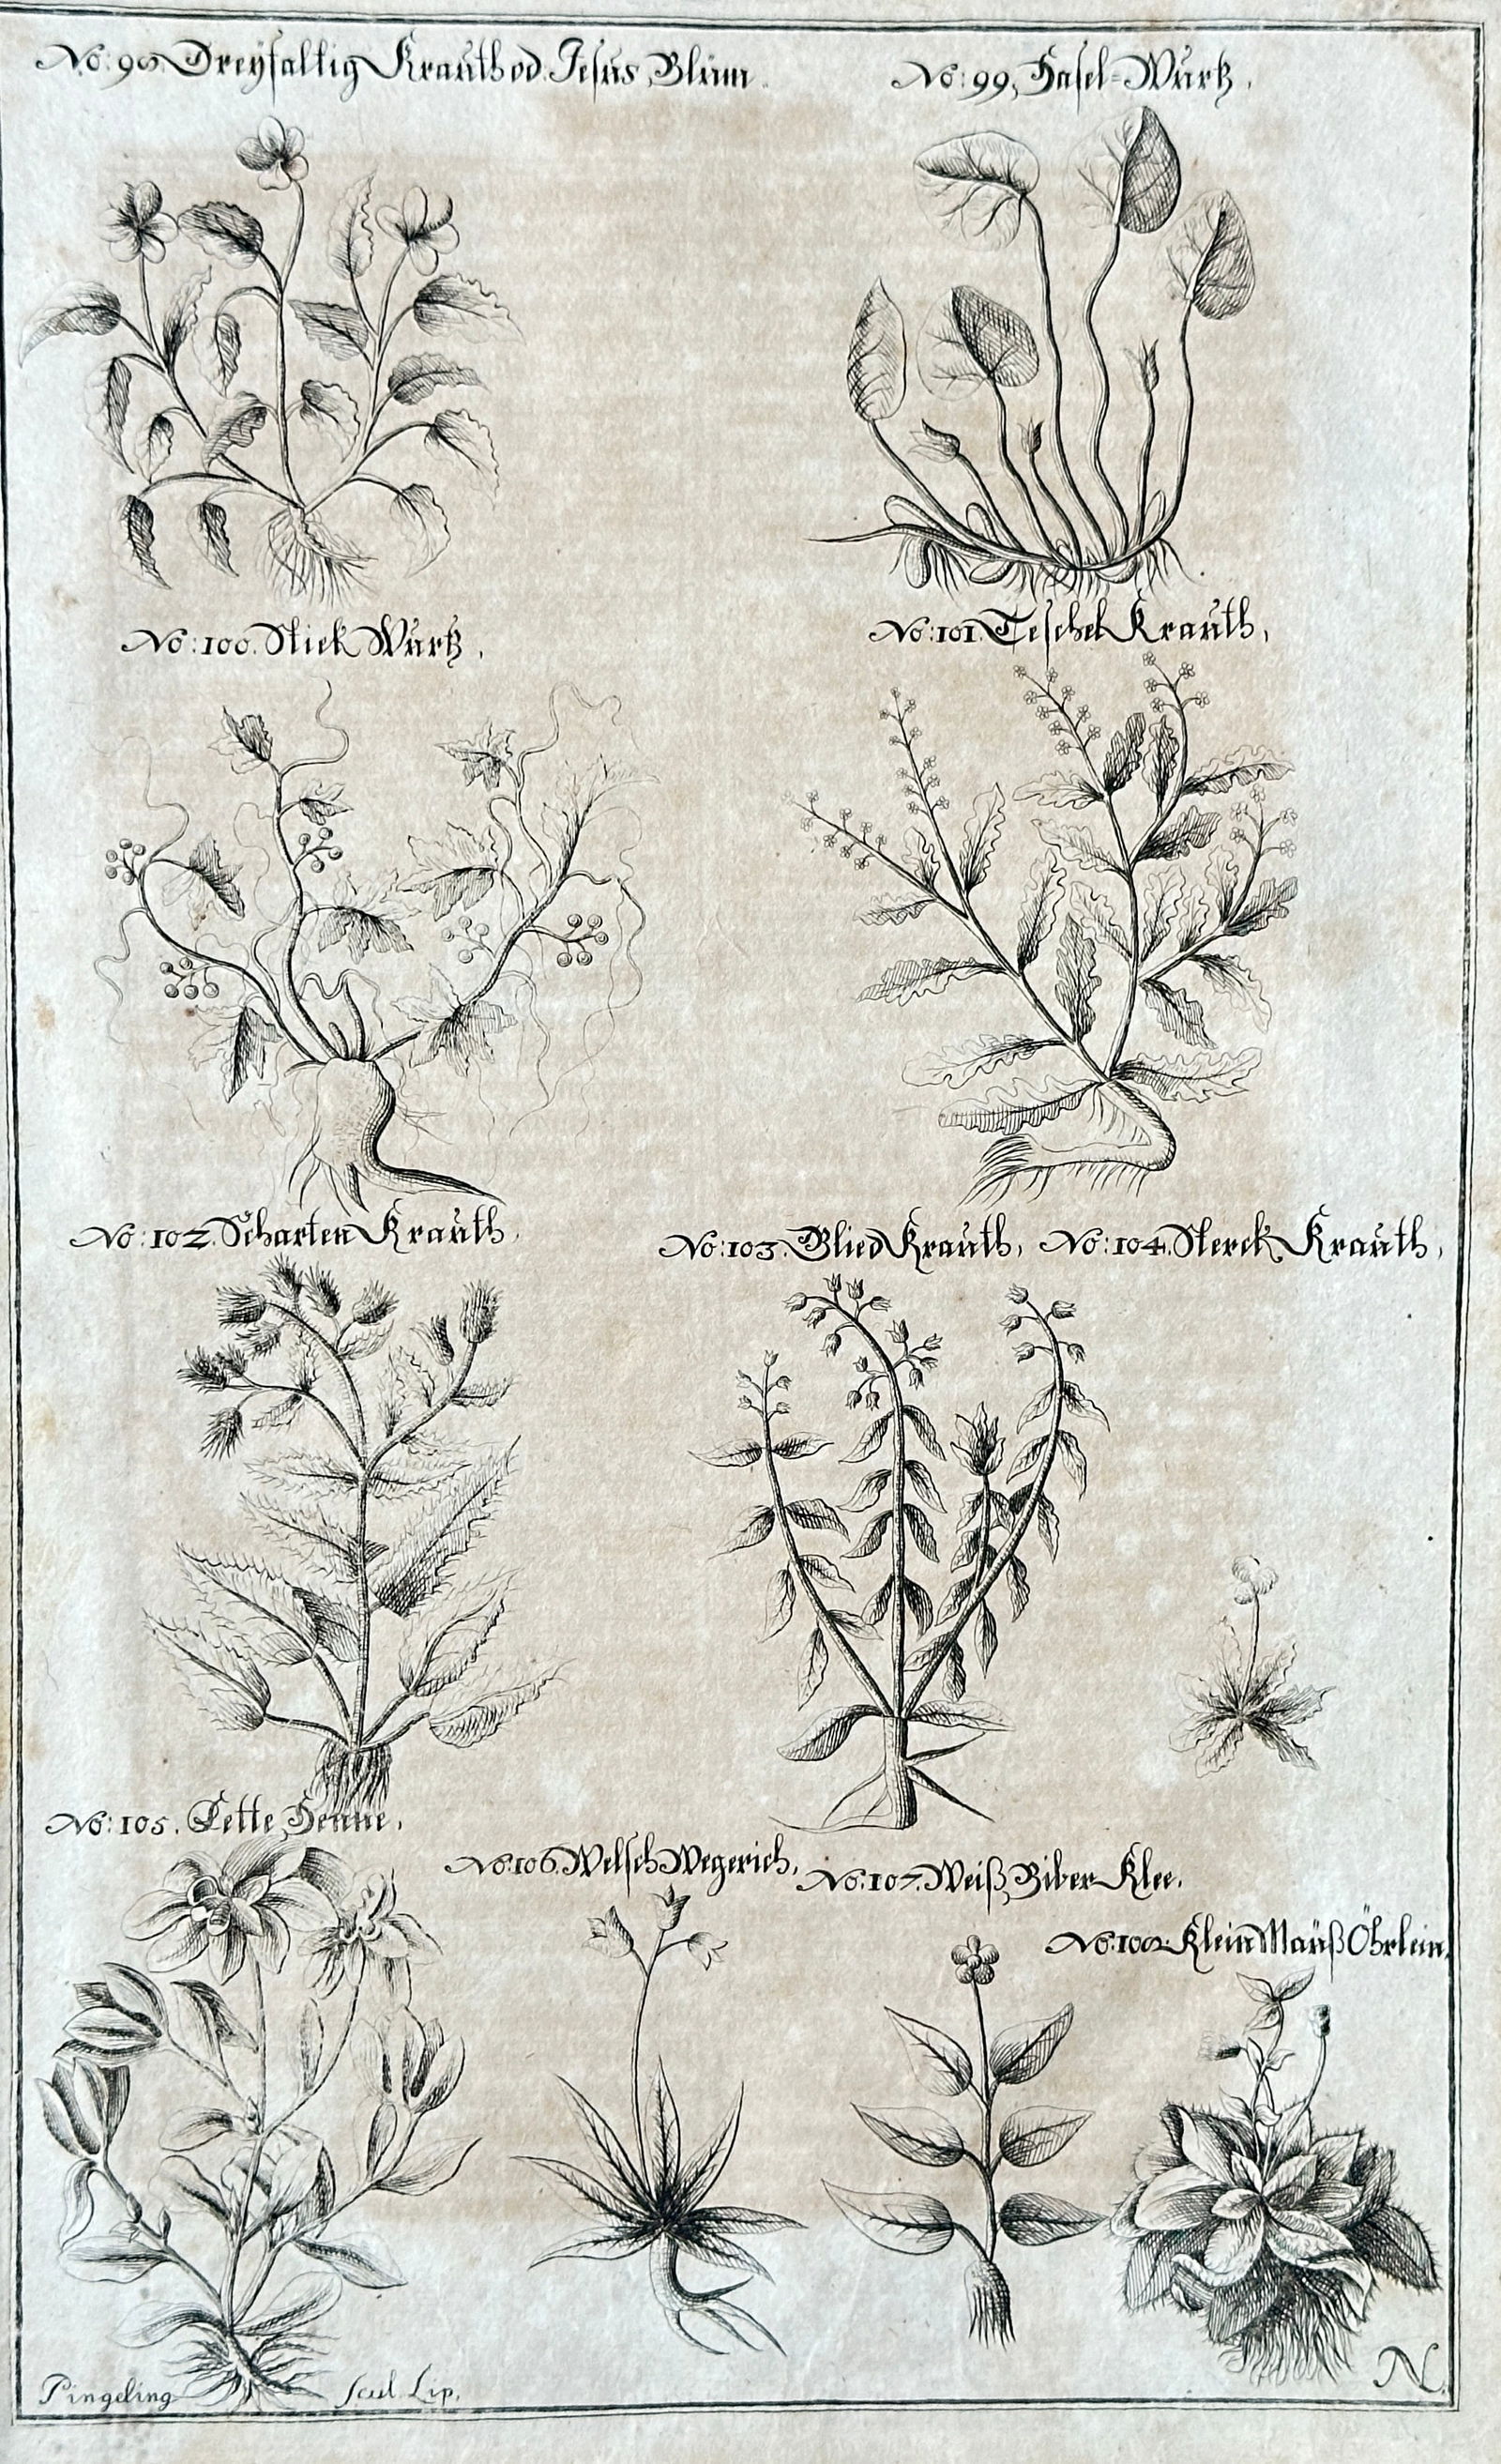 No: 98. Dreyfaltig Krauth od. Jesus Blum.
No: 99. Hasel-Wurtz.
No: 100. Stick Wurtz.
No: 101. Teschel Krauth,
No: 102. Scharten Krauth,
No: 103. Glied Krauth, No: 104. Sterck Krauth,
No: 105. Fette Henne.
No: 106. Welsch Wegerich,
No: 107. Weiß Biber Klee.
No: 108. Klein Mauß Öhrlein.
Pingeling Scul. Lip.
N.